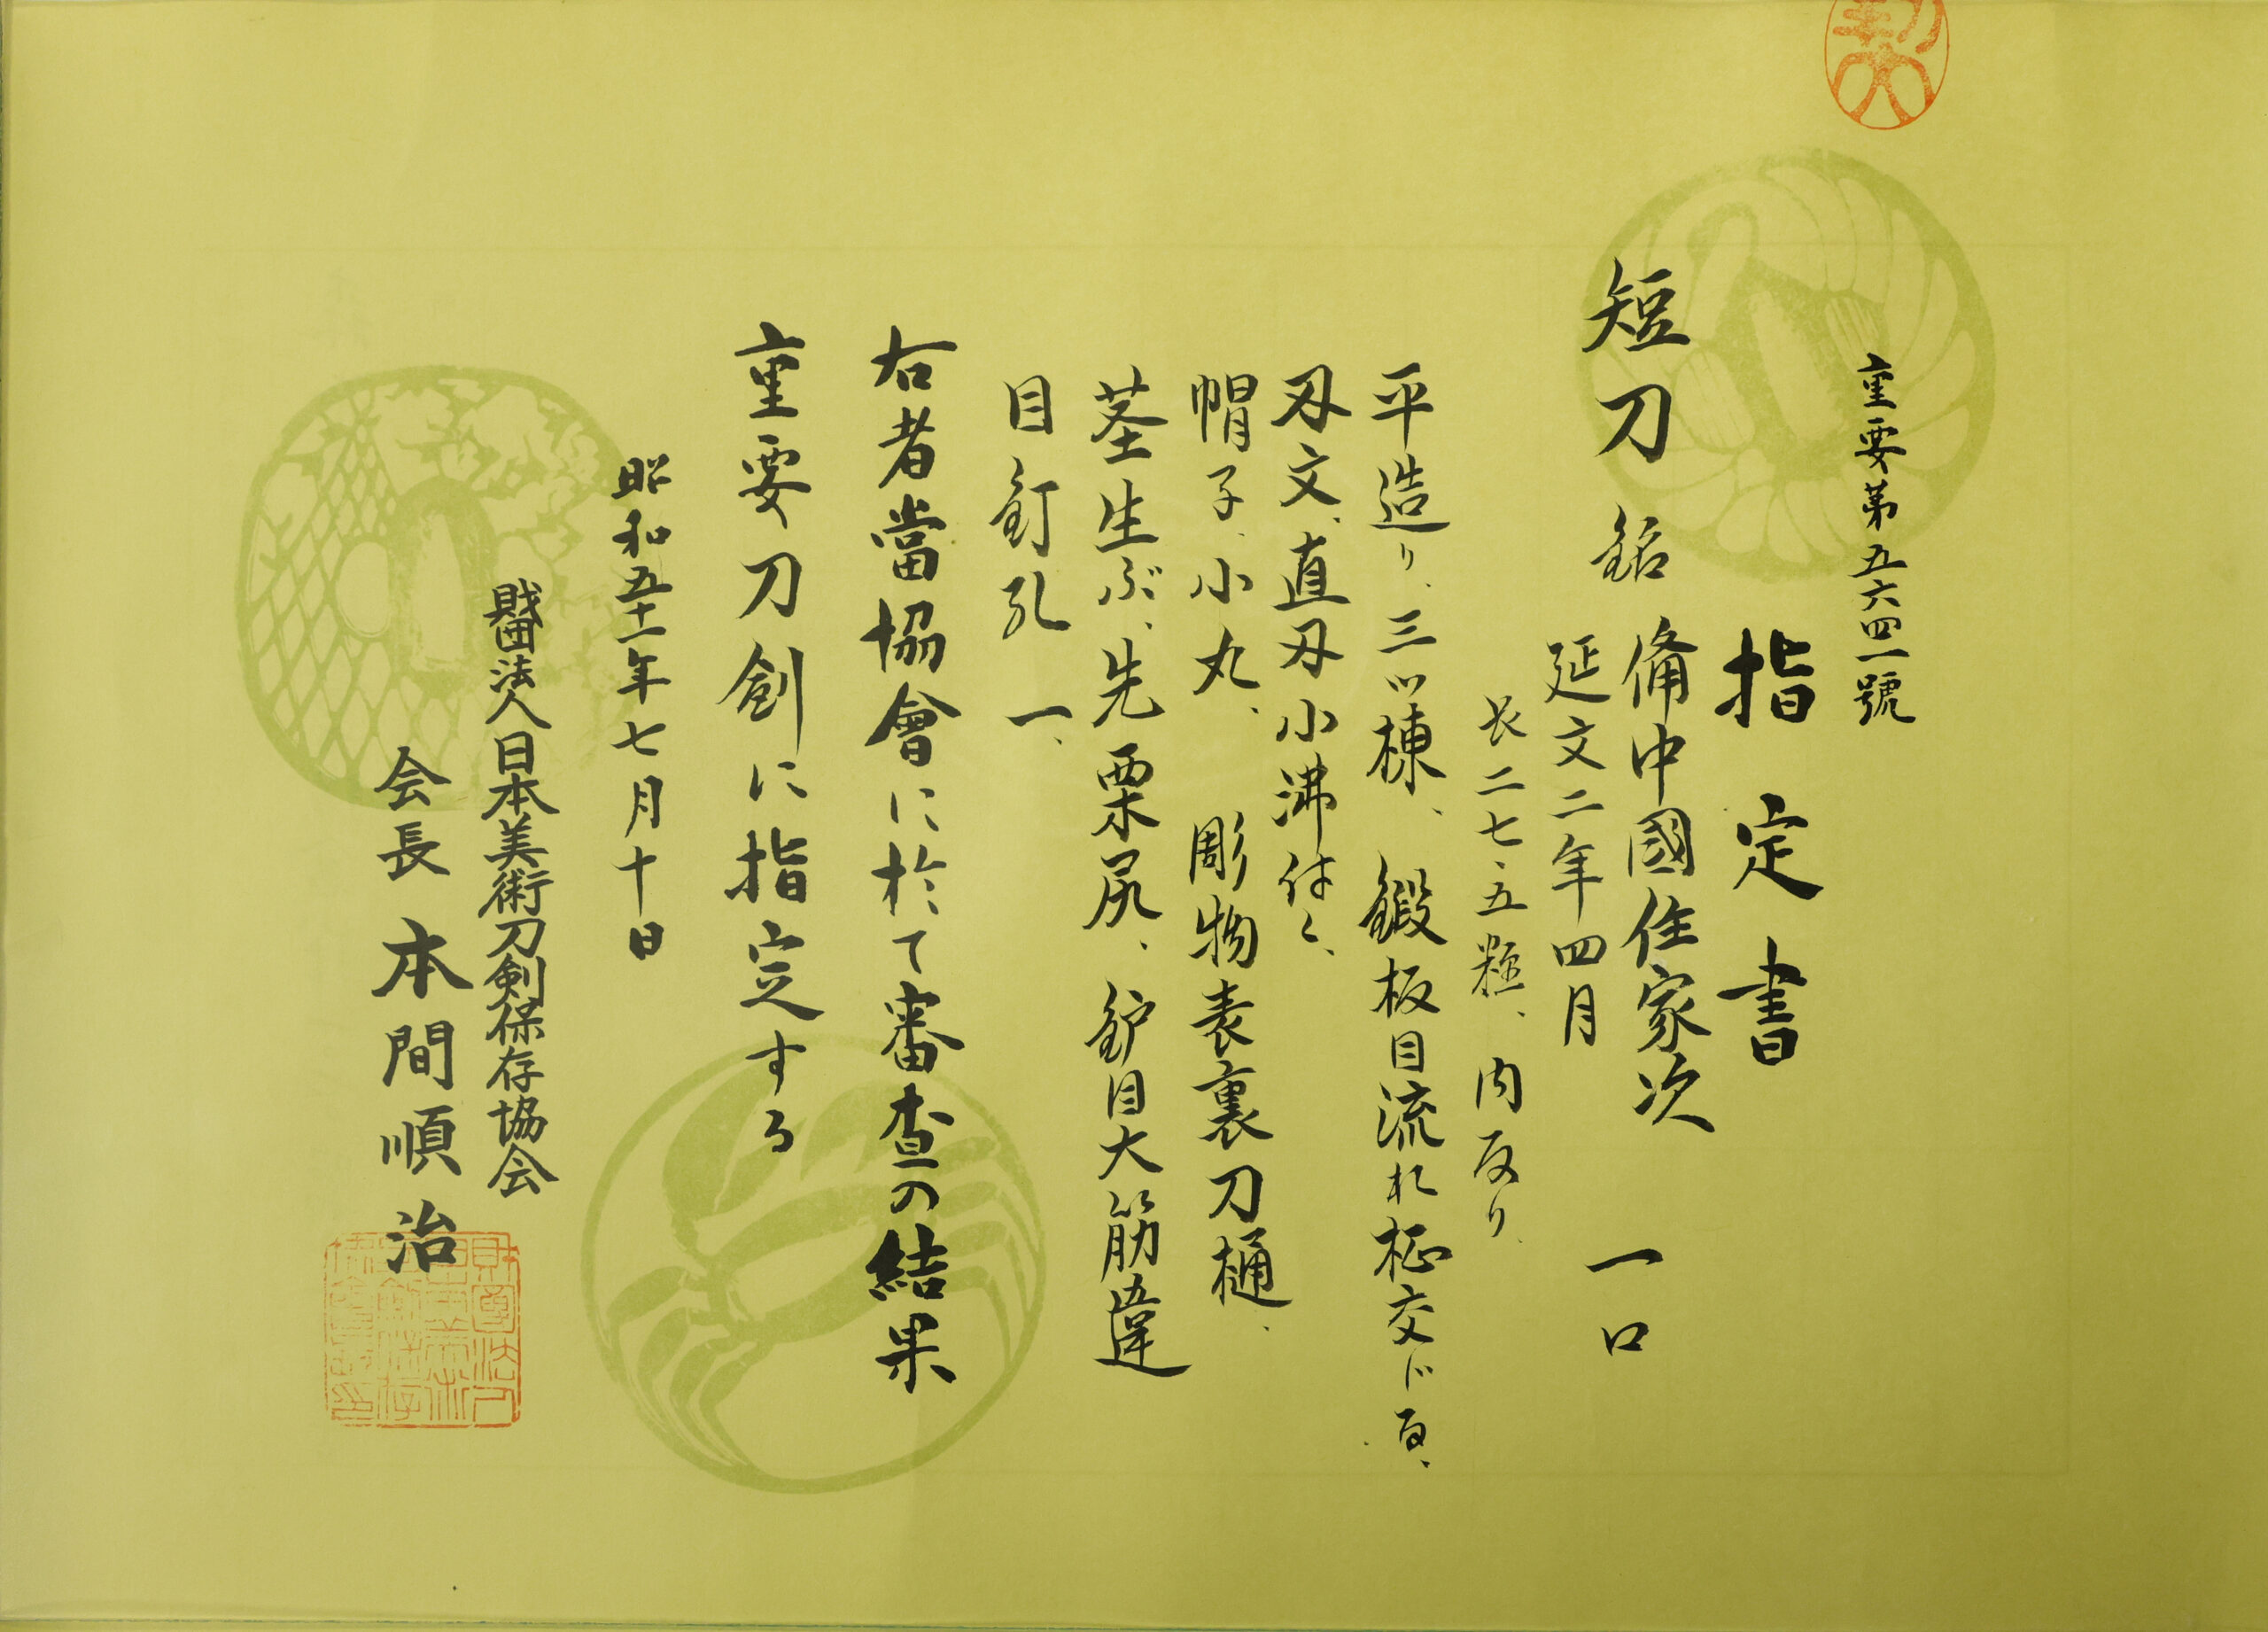 重要第五六四一號
指定書
短刀 銘 備中國住家次 一口
延文二年四月
長二七・五糎、内反り
平造り、三ッ棟、鍛板目流れ柾交じる、
刃文、直刃小沸付く、
帽子、小丸、彫物表裏刀樋、
茎生ぶ、先栗尻、鈩目大筋違
目釘孔一、
右者當協會に於て審査の結果
重要刀劍に指定する
昭和五十一年七月十日
財団法人日本美術刀剣保存協会
会長 本間順治